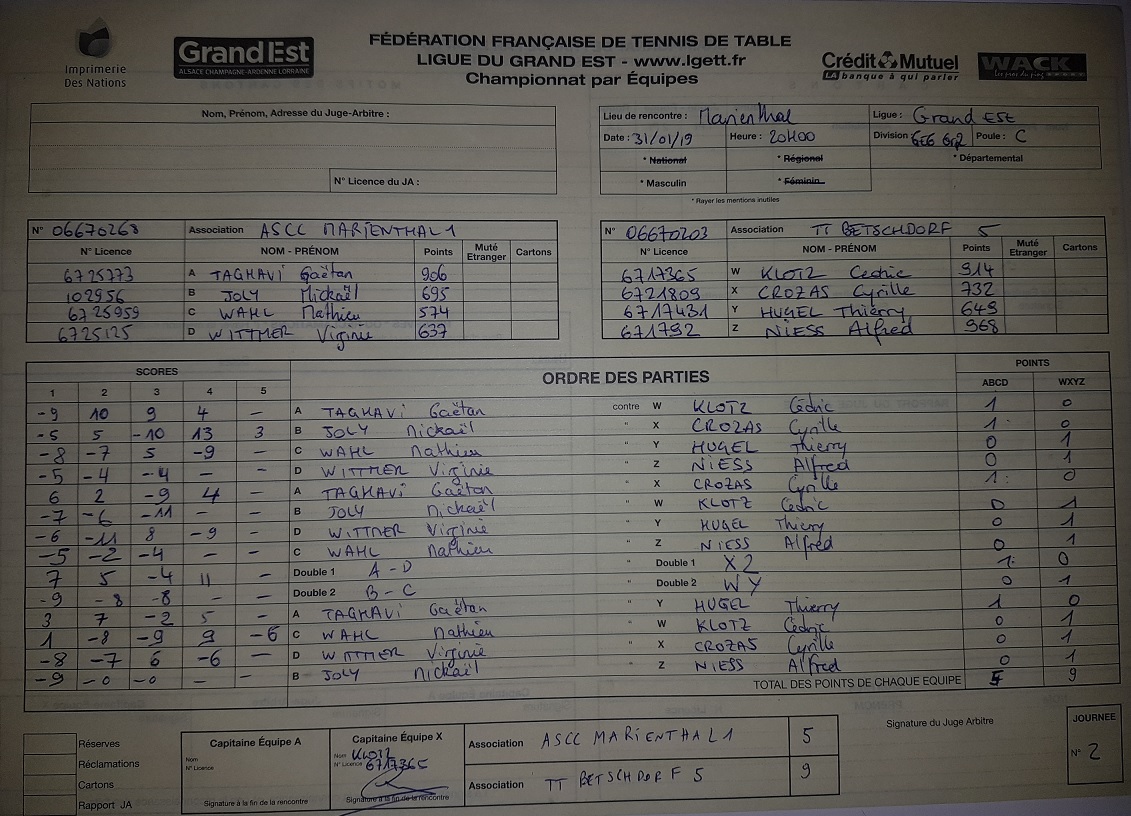 Imprimerie
Des Nations
GrandEst
ALSACE CHAMPAGNE-ARDENNE LORRAINE
FÉDÉRATION FRANÇAISE DE TENNIS DE TABLE
LIGUE DU GRAND EST - www.lgett.fr
Championnat par Équipes
Crédit Mutuel
LA banque à qui parler
WACK
Nom, Prénom, Adresse du Juge-Arbitre :
N° Licence du JA :
Lieu de rencontre : Marienthal Ligue : Grand EST
Date : 31/01/19 Heure : 20H00 Division GE6 Gr2 Poule : C
* National * Régional * Départemental
* Masculin * Féminin
* Rayer les mentions inutiles
N° 06670268 Association ASCC MARIENTHAL 1
N° Licence NOM - PRÉNOM Points Muté Etranger Cartons
6725773 A TAGHAVI Gaëtan 906
102956 B JOLY Mickaël 695
6725959 C WAHL Mathieu 574
6725125 D WITTMER Virginie 637
N° 06670203 Association TT BETSCHDORF 5
N° Licence NOM - PRÉNOM Points Muté Etranger Cartons
6717365 W KLOTZ Cédric 914
6721809 X CROZAS Cyrille 732
6717431 Y HUGEL Thierry 649
671792 Z NIESS Alfred 968
SCORES ORDRE DES PARTIES POINTS
1 2 3 4 5 ABCD WXYZ
-9 10 9 4 - A TAGHAVI Gaëtan contre W KLOTZ Cédric 1 0
-5 5 -10 13 3 B JOLY Mickaël " X CROZAS Cyrille 1 0
-8 -7 5 -9 C WAHL Mathieu " Y HUGEL Thierry 0 1
-5 -4 -4 - - D WITTMER Virginie " Z NIESS Alfred 0 1
6 2 -9 4 - A TAGHAVI Gaëtan " X CROZAS Cyrille 1 0
-7 -6 -11 - - B JOLY Mickaël " W KLOTZ Cédric 0 1
-6 -11 8 -9 - D WITTMER Virginie " Y HUGEL Thierry 0 1
-5 -2 -4 - - C WAHL Mathieu " Z NIESS Alfred 0 1
7 5 -4 11 - Double 1 A-D " Double 1 XZ 1 0
-9 -8 -8 - - Double 2 B-C " Double 2 WY 0 1
3 7 -2 5 - A TAGHAVI Gaëtan " Y HUGEL Thierry 1 0
1 -8 -9 9 -6 C WAHL Mathieu " W KLOTZ Cédric 0 1
-8 -7 6 -6 - D WITTMER Virginie " X CROZAS Cyrille 0 1
-9 -0 -0 - - B JOLY Mickaël " Z NIESS Alfred 0 1
TOTAL DES POINTS DE CHAQUE EQUIPE 5 9
Réserves
Réclamations
Cartons
Rapport JA
Capitaine Équipe A
Nom
N° Licence
Signature à la fin de la rencontre
Capitaine Équipe X
Nom KLOTZ
N° Licence 6717365
Signature à la fin de la rencontre
Association ASCC MARIENTHAL 1 5
Association TT BETSCHDORF 5 9
Signature du Juge Arbitre
JOURNEE
N° 2